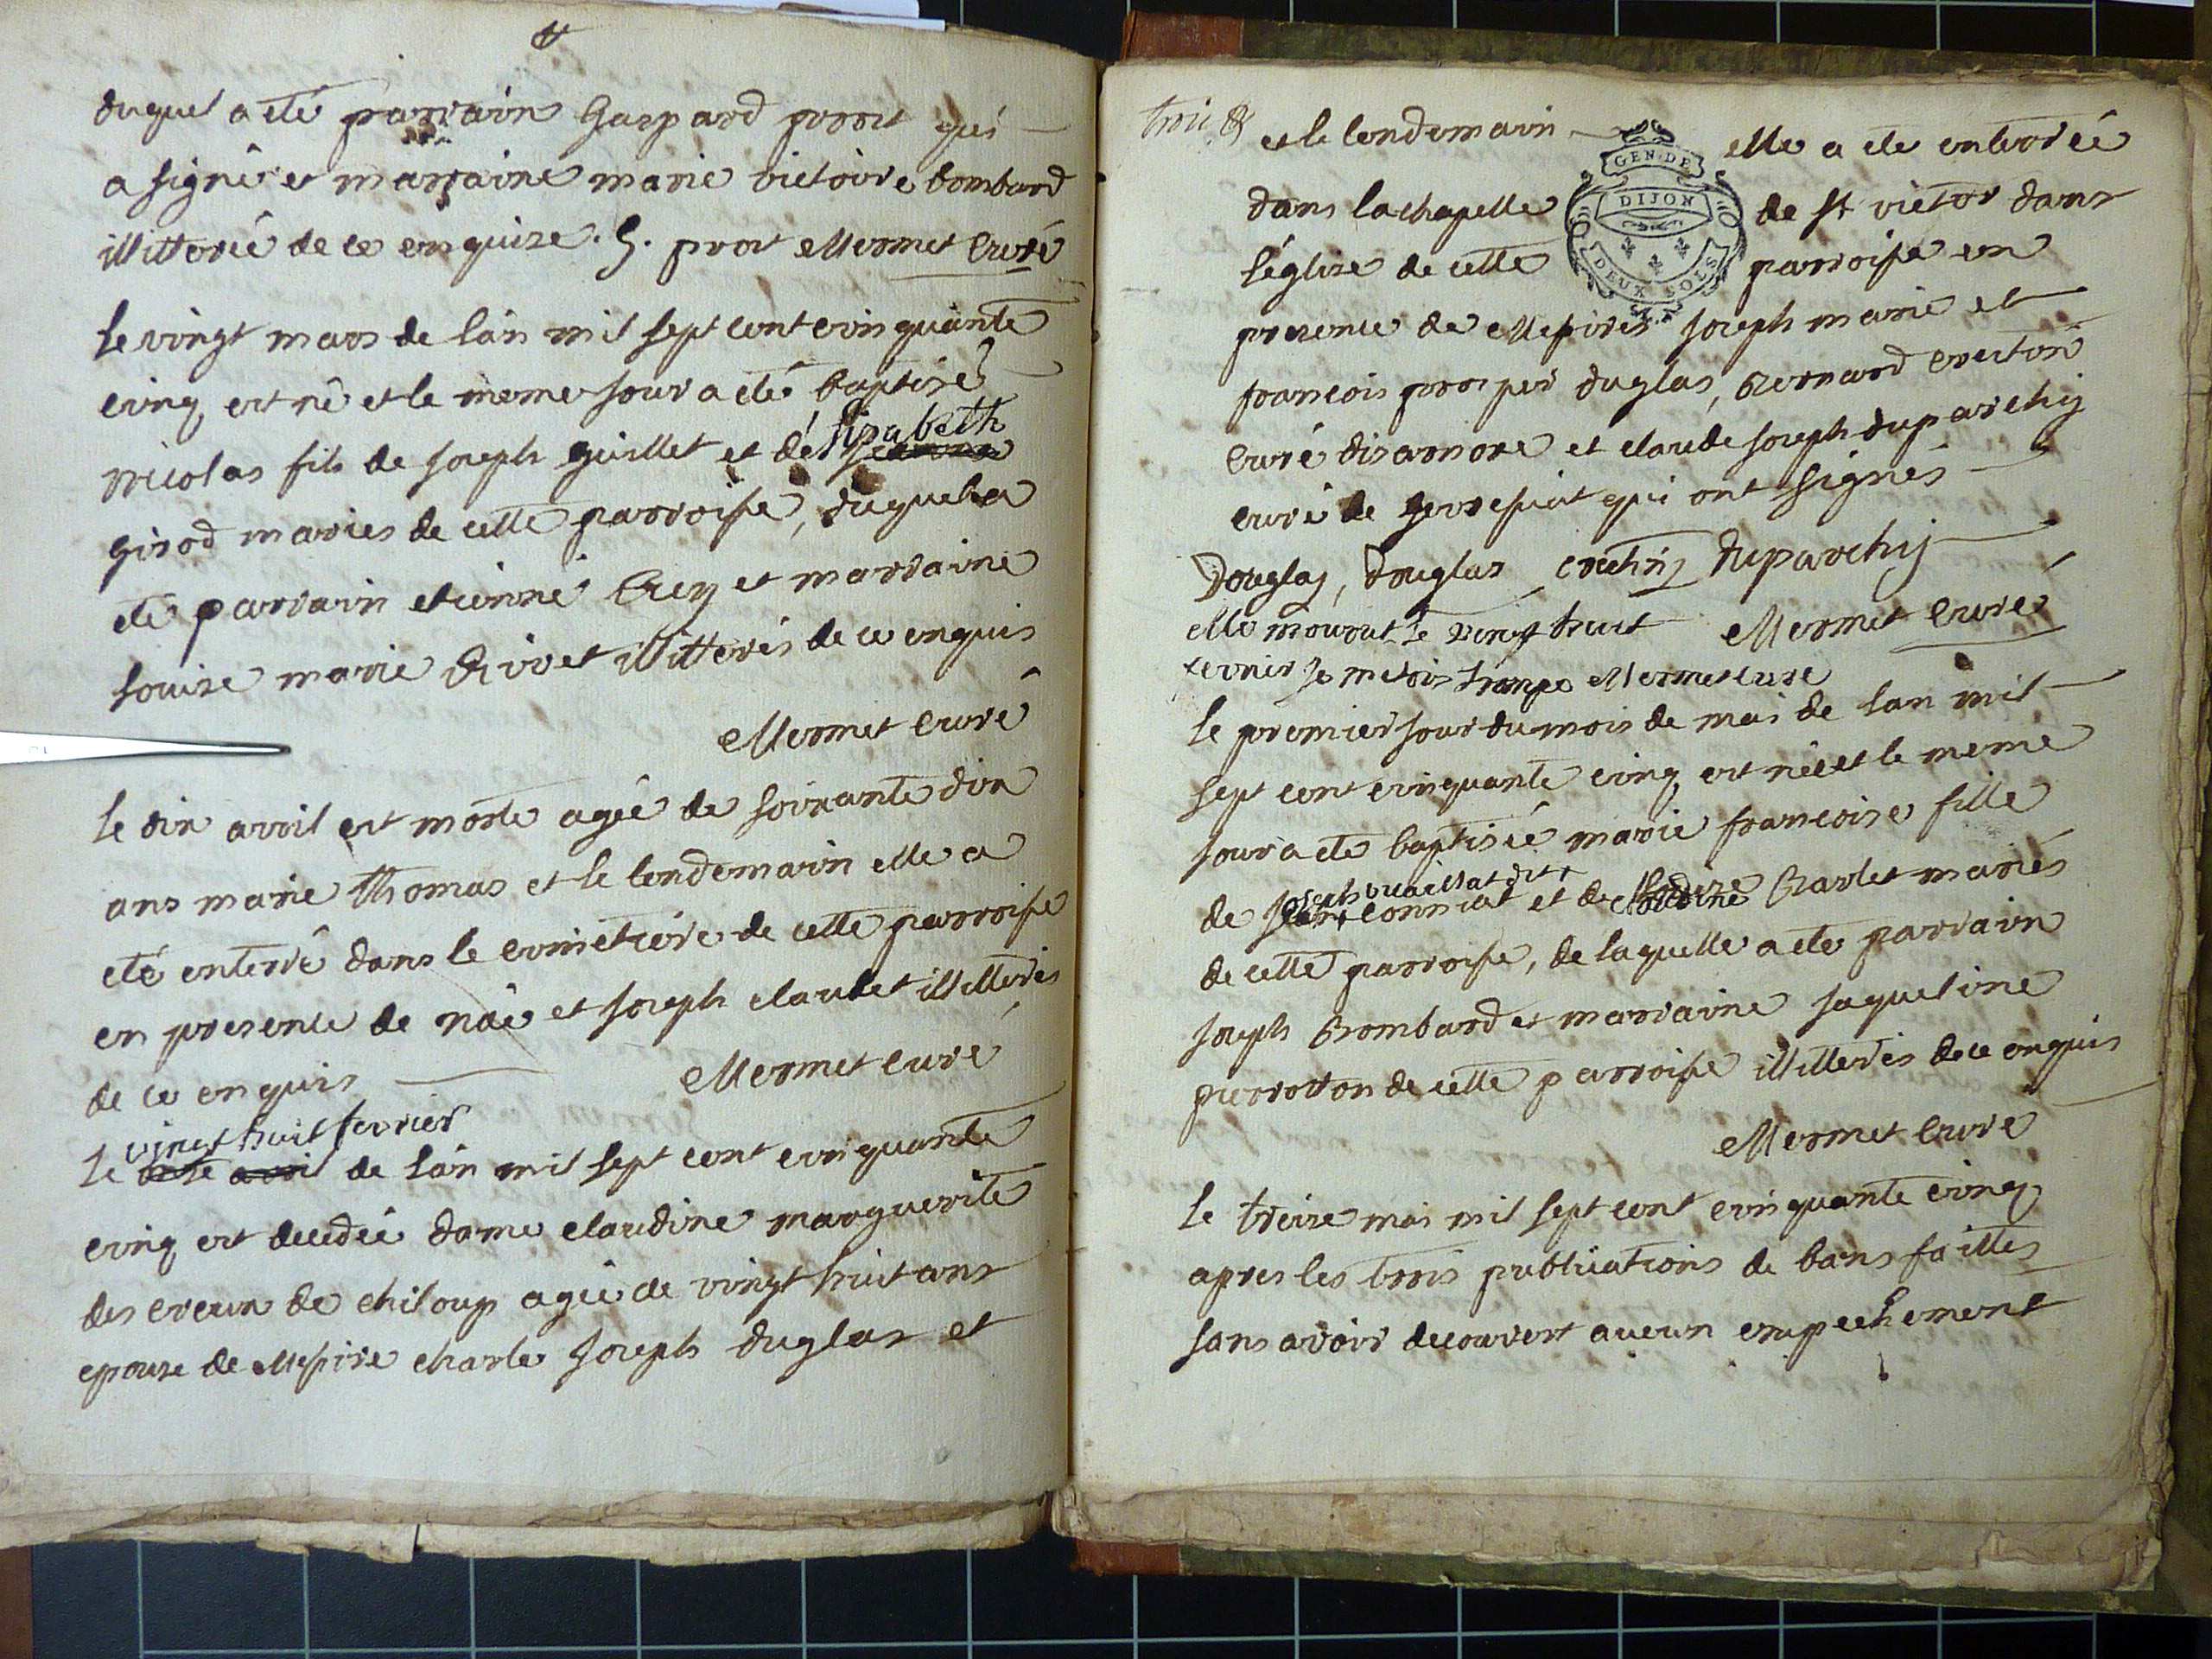 duquel a eté parrain Gaspard prost qui
a signé et marraine marie victoire bombard
illitterée de ce enquise. G. prost Mermet Curé
le vingt mars de lan mil sept cent cinquante
cinq est né et le meme jour a eté baptisé
nicolas fils de joseph guillet et de Elisabeth
girod maries de cette parroisse, duquel a
eté parrain etienne Cuey et marraine
louise marie Rivet illitterés de ce enquis
Mermet curé
le dix avril est morte agée de soixante dix
ans marie thomas et le lendemain elle a
eté enterré dans le cimetiere de cette parroisse
en presence de nöé et joseph claudet illitterés
de ce enquis Mermet curé
vingt huit fevrier
le onse avril de lan mil sept cent cinquante
cinq est decedée dame claudine marguerite
des creux de chiloup agée de vingt huit ans
epouse de Messire charle joseph duglas et
trois &
et le lendemain elle a eté enterrée
dans la chapelle de st victor dans
l'église de cette parroisse en
GEN. DE
DIJON
DEUX SOLS
presence de Messires joseph marie et
francois prosper duglas, bernard cretin
curé disarnore et claude joseph duparchy
curé de serresiat qui ont signés
Douglas, Douglas cretin duparchy
elle mourut le vingt huit Mermet Curé
fevrier je metois trompe Mermet curé
le premier jour du mois de mai de lan mil
sept cent cinquante cinq est née et le meme
jour a ete baptisée marie francoise fille
de joseph vuaillat dit
conniat et de Claudine Barlet mariés
de cette parroisse, de laquelle a ete parrain
joseph Bombard et marraine jaqueline
pierrotton de cette parroisse illitterés de ce enquis
Mermet curé
le treize mai mil sept cent cinquante cinq
apres les trois publications de bans faittes
sans avoir decouvert aucun empechement